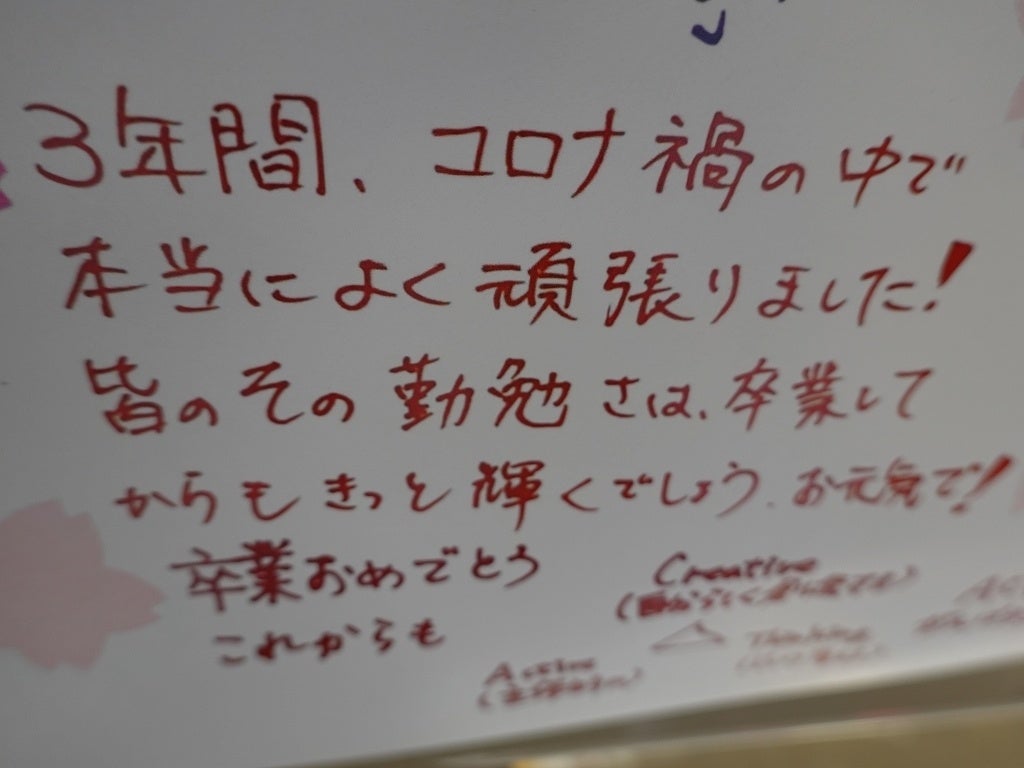 3年間、コロナ禍の中で
本当によく頑張りました!
皆のその勤勉さは、卒業して
からもきっと輝くでしょう。お元気で!
卒業おめでとう
これからも
Creative
Thinking
Active